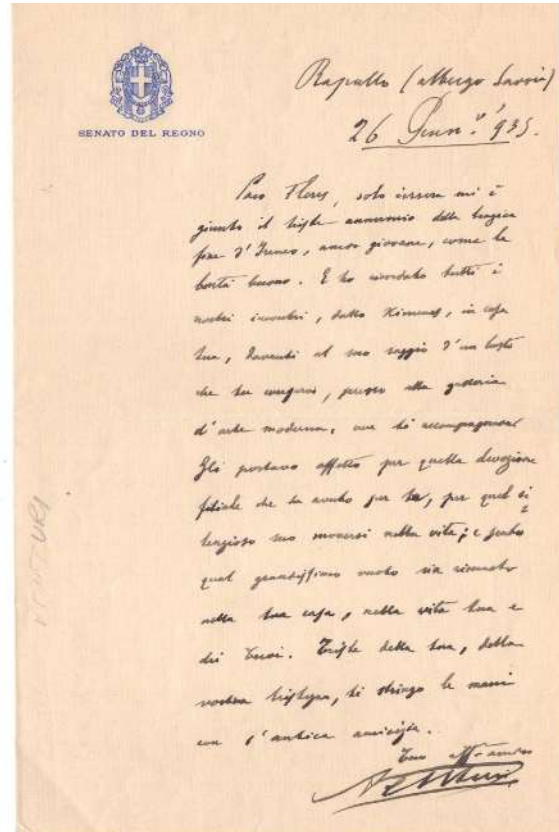 SENATO DEL REGNO
Rapallo (albergo Savoia)
26 Genn. 935.
Caro Fleres, solo iersera mi è
giunto il triste annunzio della tragica
fine d'Ireneo, ancor giovane, come la
bontà buono. E ho ricordato tutti i
nostri incontri, dallo Ximenes, in casa
tua, davanti al suo saggio d'un busto
che tu, presso alla galleria
d'arte moderna, ove ti accompagnava.
Gli portavo affetto per quella devozione
filiale che ha avuto per te, per quel si
lenzioso suo muoversi nella vita; e sento
qual grandissimo vuoto sia rimasto
nella tua casa, nella vita tua e
dei tuoi. Triste della tua, della
vostra tristezza, ti stringo le mani
con l'antica amicizia.
Tuo aff. amico
VENTURI